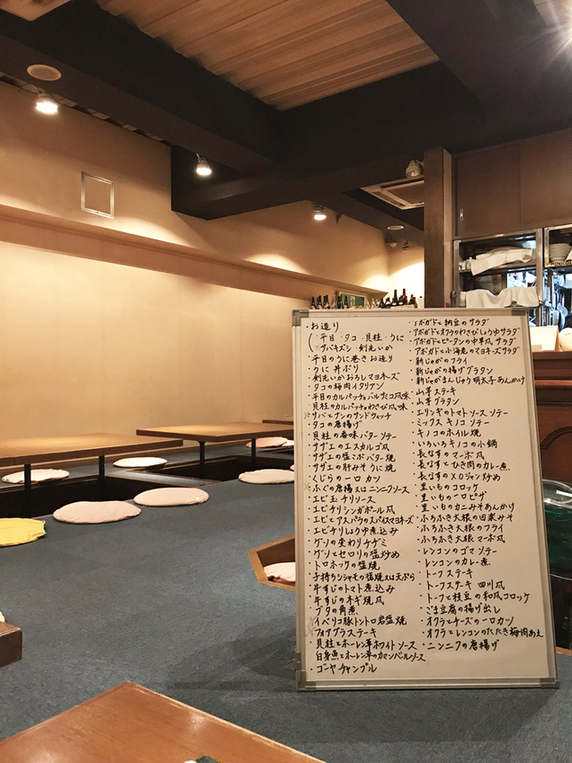 ・お造り
(平目・タコ・貝柱・うに
・サバキズシ・剣先いか
・平目のうに巻きお造り
・うに丼ぶり
・剣先いかおろしマヨネーズ
・タコの梅肉イタリアン
・平目のカルパッチョバルたこ風味
・貝柱のカルパッチョわさび風味
・サバとナンのサンドウィッチ
・タコの唐揚げ
・貝柱の香味バターソテー
・サザエのエスカルゴ風
・サザエの塩こぶバター焼
・サザエの肝みそうに焼
・くじらの一口カツ
・ふぐの唐揚 又はニンニクソース
・エビ玉チリソース
・エビチリシンガポール風
・エビとアスパラのスパイスマヨネーズ
・エビチリしょうゆ煮込み
・ゲソの変わりチヂミ
・ゲソとセロリの塩炒め
・トロホッケの塩焼
・子持ちシシャモの塩焼又は天ぷら
・牛すじのトマト煮込み
・牛すじのネギ焼風
・ブタの角煮
・イベリコ豚トントロ岩塩焼
・フォアグラステーキ
・貝柱とホーレン草ホワイトソース
・白身魚とホーレン草のカマンベールソース
・ゴーヤチャンプル
・アボガドと納豆のサラダ
・アボガドとオクラのわさびしょうゆサラダ
・アボガドとピータンの中華風サラダ
・アボガドと小海老のマヨネーズサラダ
・新じゃがのフライ
・新じゃがの揚げグラタン
・新じゃがまんじゅう明太子あんかけ
・山芋ステーキ
・山芋グラタン
・エリンギのトマトソースソテー
・ミックスキノコソテー
・キノコのホイル焼
・いろいろキノコの小鍋
・長なすのマーボ風
・長なすとひき肉のカレー煮
・長なすのXOジャン炒め
・里いものコロッケ
・里いもの一口ピザ
・里いものカニみそあんかけ
・ふろふき大根の田楽みそ
・ふろふき大根のフライ
・ふろふき大根マーボ風
・レンコンのゴマソテー
・レンコンのカレー煮
・トーフステーキ
・トーフステーキ 四川風
・トーフと枝豆の和風コロッケ
・ごま豆腐の揚げ出し
・オクラとチーズの一口カツ
・オクラとレンコンのたたき梅肉あえ
・ニンニクの唐揚げ